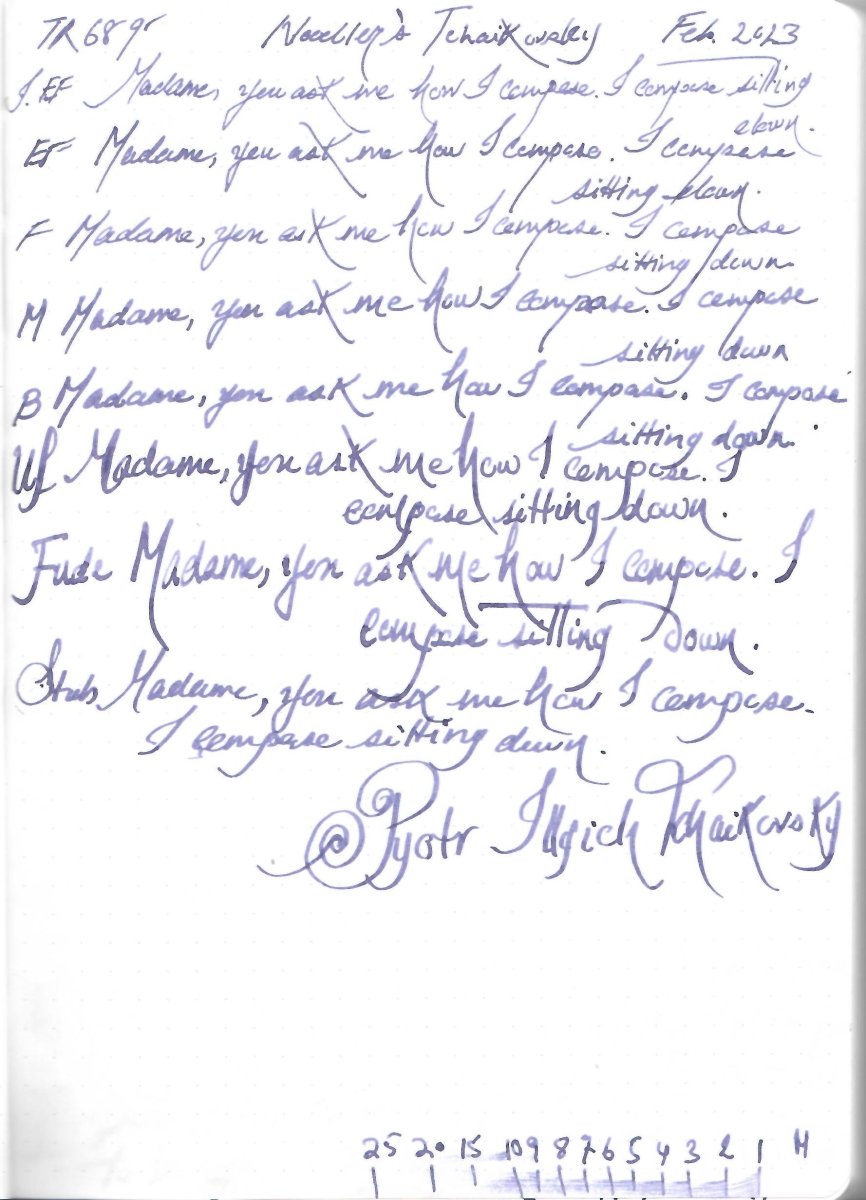 TR 68 gr Noodler's Tchaikovsky Feb. 2023
J. EF Madame, you ask me how I compose. I compose sitting
down.
EF Madame, you ask me how I compose. I compose
sitting down.
F Madame, you ask me how I compose. I compose
sitting down
M Madame, you ask me how I compose. I compose
sitting down
B Madame, you ask me how I compose. I compose
sitting down.
Uf Madame, you ask me how I compose. I
compose sitting down.
Fude Madame, you ask me how I compose. I
compose sitting down.
Stub Madame, you ask me how I compose.
I compose sitting down.
@Pyotr Ilyich Tchaikovsky
25 20 15 10 9 8 7 6 5 4 3 2 1 M